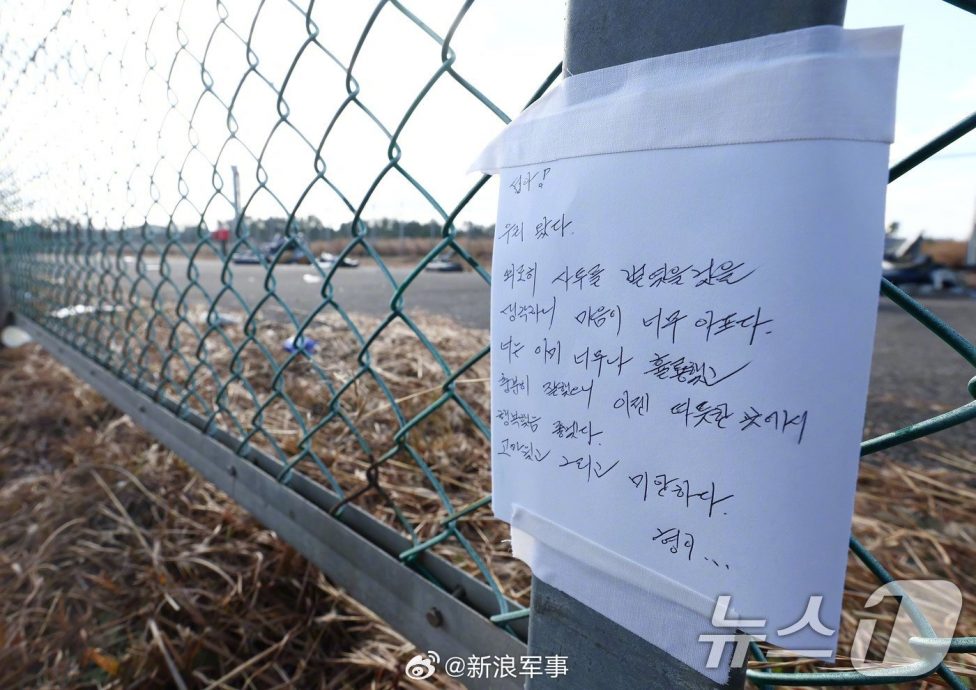 섭아!
우리 왔다.
외로히 사투를 벌였을 것을
생각하니 마음이 너무 아프다.
너는 이미 너무나 훌륭했고
충분히 잘했으니 이젠 따뜻한 곳에서
행복했음 좋겠다.
고마웠고 그리고 미안하다.
형이...
뉴스1
@新浪军事